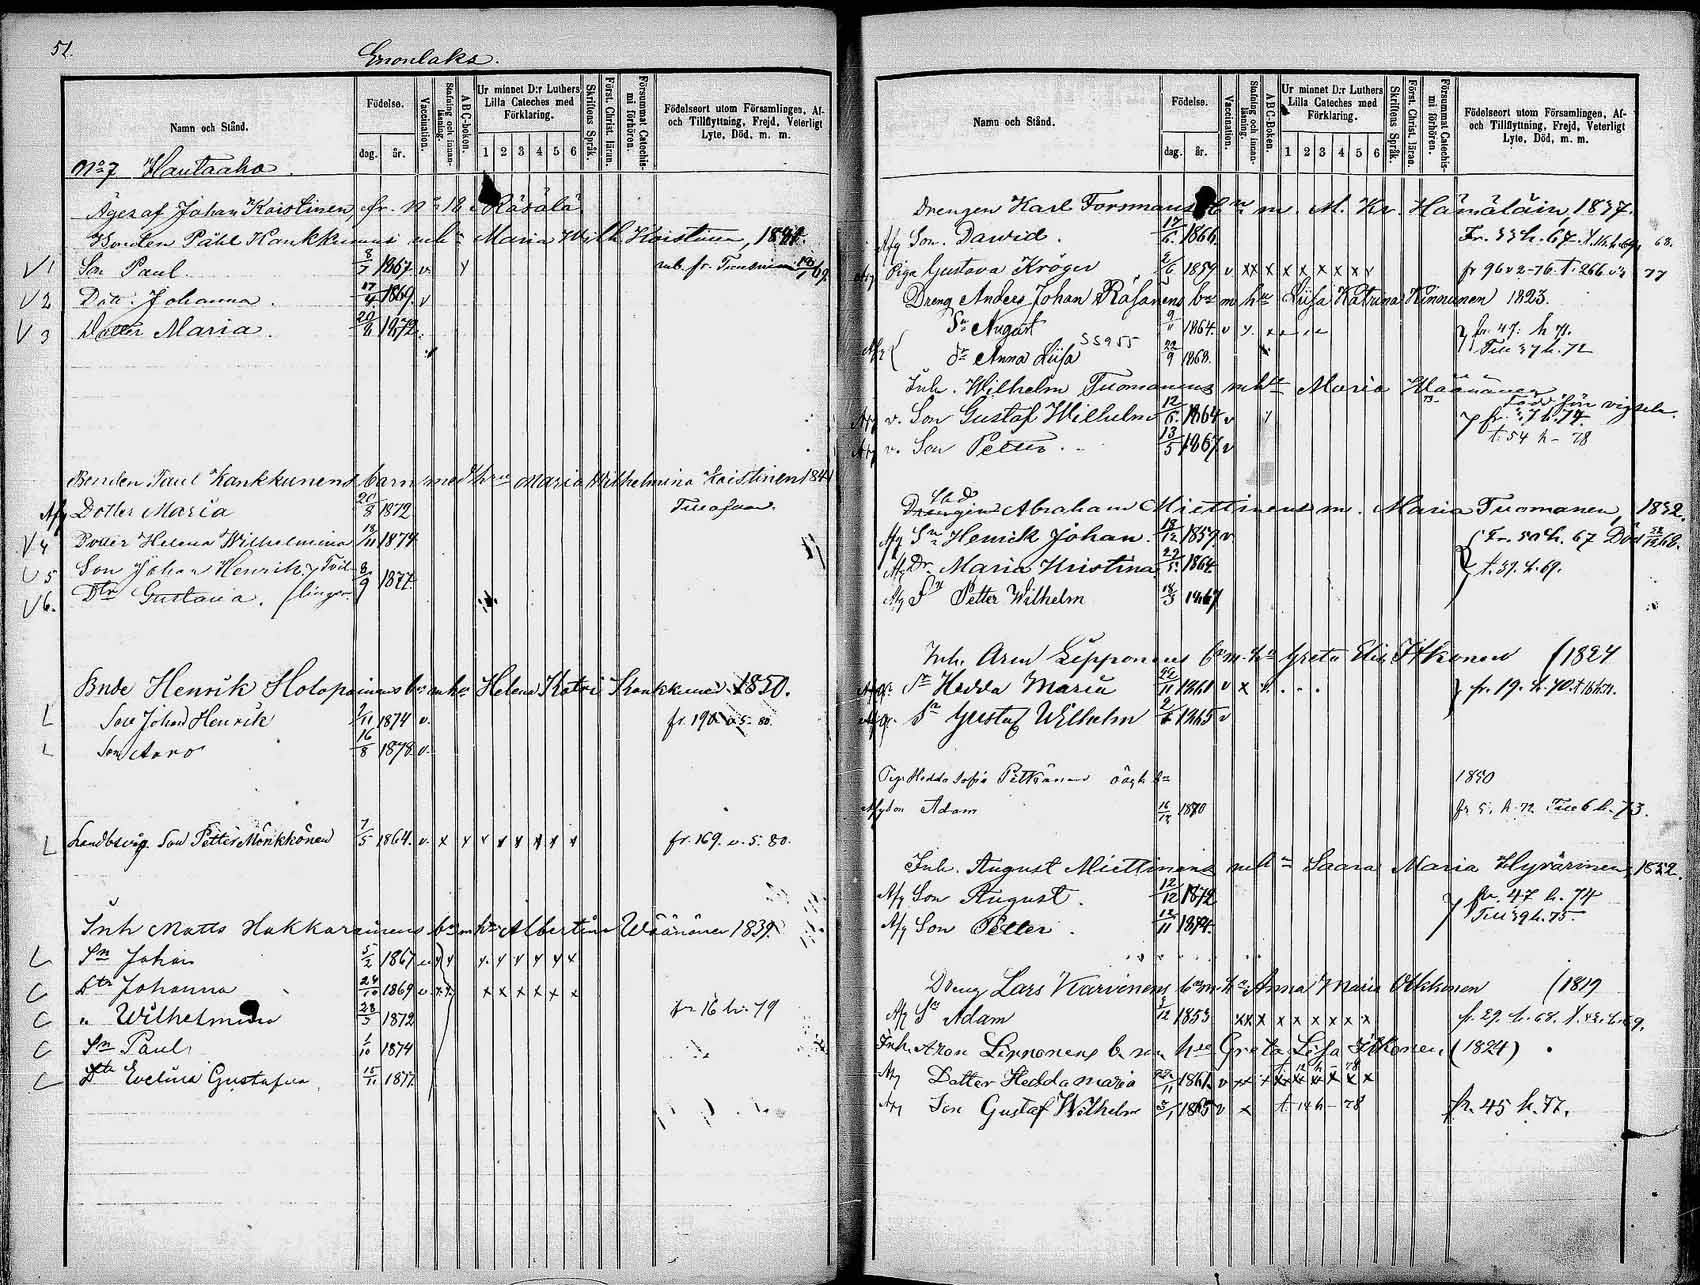 51.
Enonlaks.
Namn och Stånd.
Födelse.
dag. år.
Vaccination.
Stafning och innanläsning.
ABC-boken.
Ur minnet D:r Luthers Lilla Cateches med Förklaring.
1 2 3 4 5 6
Skriftens Språk.
Först. Christ. läran.
Försummat Catechismi förhören.
Födelseort utom Församlingen, Af- och Tillflyttning, Frejd, Veterligt Lyte, Död, m. m.
No 7 Hautaaho.
Äges af Johan Koistinen, fr. No 18 Räsälä
Bonden Påhl Kankkunens mh: Maria Wilh Koistinen, 1841.
V 1 Son Paul. 8/7 1867 v. y
V 2 Dotr. Johanna. 17/4 1869 v
V 3 Dotter Maria. 20/8 1872
Bonden Paul Kankkunens barn med hru Maria Wilhelmina Koistinen 1841
Afg Dotter Maria 20/8 1872
V 4 Dotter Helena Wilhelmina 18/11 1874
V 5 Son Johan Henrik } Tvil- 8/9 1877
V 6. Dtr Gustava. } lingar.
Bnde Henrik Holopainens b: m hu Helena Katri Kankkunen 1850.
L Son Johan Henrik 2/11 1874 v. fr. 190 v. 5. 80.
L Son Aaro 16/8 1878 v.
L Landbovg. Son Petter Mönkkönen 7/5 1864. v. x y v y y y y y fr. 169. v. 5. 80.
Inh Matts Hakkarainens bn m hu Albertina Wäänänen 1839.
L Sn Johan 5/2 1867
L Dtr Johanna 24/10 1869 v. x x x x x x
L " Wilhelmina 28/3 1872 fr 16 h. 79
L Sn Paul 1/10 1874
L Dtr Evelina Gustafva 15/11 1877
Namn och Stånd.
Födelse.
dag. år.
Vaccination.
Stafning och innanläsning.
ABC-boken.
Ur minnet D:r Luthers Lilla Cateches med Förklaring.
1 2 3 4 5 6
Skriftens Språk.
Först. Christ. läran.
Försummat Catechismi förhören.
Födelseort utom Församlingen, Af- och Tillflyttning, Frejd, Veterligt Lyte, Död, m. m.
Drengen Karl Forsmans bn m. M. Kr. Hämäläin, 1837.
Afg Son. Dawid. 17/6 1866 Fr. 33 h. 67.
Afg Piga Gustava Kröger 2/6 1859 v xx x x x x x x v fr 96 v 2-76. t. 266 v. 3 77
Dreng Anders Johan Räsänens bn m hu Liisa Katrina Kinnunen 1823.
Sn August 9/11 1864. v fr. 47. h 71.
Afg { Dr Anna Liisa SS955 22/9 1868. Till 37 h. 72
Inh. Wilhelm Tuomanens m hu Maria Wäänänen
Afg v. Son Gustaf Wilhelm 12/6 1864 v född före vigseln. fr. 37 h. 74.
Afg v. Son Petter 13/5 1867 v t. 54 h - 78
Drengen Abraham Miettinens m. Maria Tuomanen, 1832.
Afg Sn Henrik Johan. 18/12 1859 v Fr. 50 h. 67 Död
Afg Dr. Maria Kristina 1864. t. 39. h. 69.
Afg Sn Petter Wilhelm 18/3 1867
Inh. Aron Lipponens bn m. hu Greta Elis Itkonen (1824
Afg Dr Hedda Maria 22/11 1861 v x fr. 19. h. 70.
Afg Sn Gustaf Wilhelm 1865 v
Piga Hedda Sofia Pitkänens oägt bn 1850
Afg Son Adam 16/12 1870 fr 5. h. 72 Till 6 h. 73.
Inh. August Miettinens m hu Saara Maria Hyvärinen, 1852.
Afg Son August. 12/12 1872 fr. 47 h. 74
Afg Son Petter. 12/11 1874. Till 39 h. 75.
Dreng Lars Karvinens bn m. hu Anna Maria Otkkonen (1819
Afg Sn Adam 1853 xx x x x x x x x fr. 29. h. 68.
Inh. Aron Lipponens b. m hu Greta Lisa Itkonen (1824)
Afg Dotter Hedda Maria 22/11 1861. v
Afg Son Gustaf Wilhelm 1865 v x t. 14 h - 78 fr. 45 h. 77.